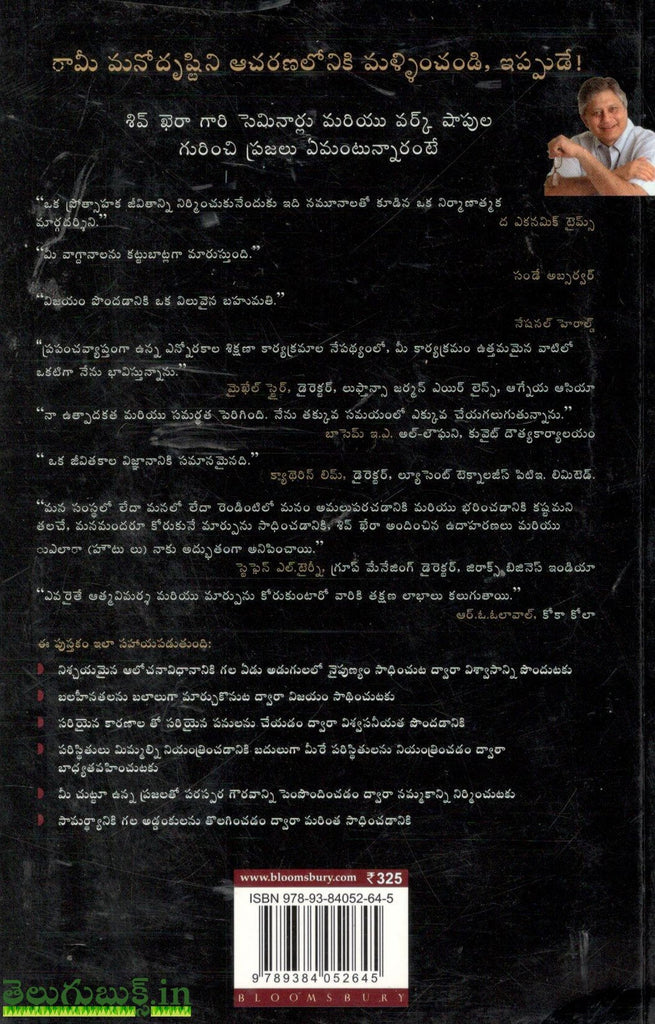 ఈమీ మనోదృష్టిని ఆచరణలోనికి మళ్ళించండి, ఇప్పుడే!
శివ్ ఖెరా గారి సెమినార్లు మరియు వర్క్ షాపుల
గురించి ప్రజలు ఏమంటున్నారంటే
“ఒక ప్రోత్సాహక జీవితాన్ని నిర్మించుకునేందుకు ఇది నమూనాలతో కూడిన ఒక నిర్మాణాత్మక
మార్గదర్శిని.” ద ఎకనమిక్ టైమ్స్
“మీ వాగ్దానాలను కట్టుబాట్లగా మారుస్తుంది.”
సండే అబ్సర్వర్
“విజయం పొందడానికి ఒక విలువైన బహుమతి.”
నేషనల్ హెరాల్డ్
“ప్రపంచవ్యాప్తంగా ఉన్న ఎన్నోరకాల శిక్షణా కార్యక్రమాల నేపథ్యంలో, మీ కార్యక్రమం ఉత్తమమైన వాటిలో
ఒకటిగా నేను భావిస్తున్నాను.”
మైఖేల్ స్టైర్, డైరెక్టర్, లుఫాన్సా జర్మన్ ఎయిర్ లైన్స్, ఆగ్నేయ ఆసియా
“నా ఉత్పాదకత మరియు సమర్థత పెరిగింది. నేను తక్కువ సమయంలో ఎక్కువ చేయగలుగుతున్నాను.”
బాసెమ్ ఇ.ఎ. అల్-లౌఘని, కువైట్ దౌత్యకార్యాలయం
“ ఒక జీవితకాల విజ్ఞానానికి సమానమైనది.”
క్యాథెరిన్ లిమ్, డైరెక్టర్, ల్యూసెంట్ టెక్నాలజీస్ పిటిఇ. లిమిటెడ్.
“మన సంస్థలో లేదా మనలో లేదా రెండింటిలో మనం అమలుపరచడానికి మరియు భరించడానికి కష్టమని
తలచే, మనమందరూ కోరుకునే మార్పును సాధించడానికి, శివ్ ఖేరా అందించిన ఉదాహరణలు మరియు
(హౌటు లు) నాకు అద్భుతంగా అనిపించాయి.”
స్టెఫైన్ ఎల్.టైర్నీ, గ్రూప్ మేనేజింగ్ డైరెక్టర్, జిరాక్స్ బిజినెస్ ఇండియా
“ఎవరైతే ఆత్మవిమర్శ మరియు మార్పును కోరుకుంటారో వారికి తక్షణ లాభాలు కలుగుతాయి.”
ఆర్.ఓ.ఓలావాల్, కోకా కోలా
ఈ పుస్తకం ఇలా సహాయపడుతుంది:
నిశ్చయమైన ఆలోచనావిధానానికి గల ఏడు అడుగులలో నైపుణ్యం సాధించుట ద్వారా విశ్వాసాన్ని పొందుటకు
బలహీనతలను బలాలుగా మార్చుకొనుట ద్వారా విజయం సాధించుటకు
సరియైన కారణాల తో సరియైన పనులను చేయడం ద్వారా విశ్వసనీయత పొందడానికి
పరిస్థితులు మిమ్మల్ని నియంత్రించడానికి బదులుగా మీరే పరిస్థితులను నియంత్రించడం ద్వారా
బాధ్యతవహించుటకు
మీ చుట్టూ ఉన్న ప్రజలతో పరస్పర గౌరవాన్ని పెంపొందించడం ద్వారా నమ్మకాన్ని నిర్మించుటకు
సామర్థ్యానికి గల అడ్డంకులను తొలగించడం ద్వారా మరింత సాధించడానికి
www.bloomsbury.com ₹325
ISBN 978-93-84052-64-5
9 789384 052645
BLOOMSBURY
తెలుగుబుక్స్.in